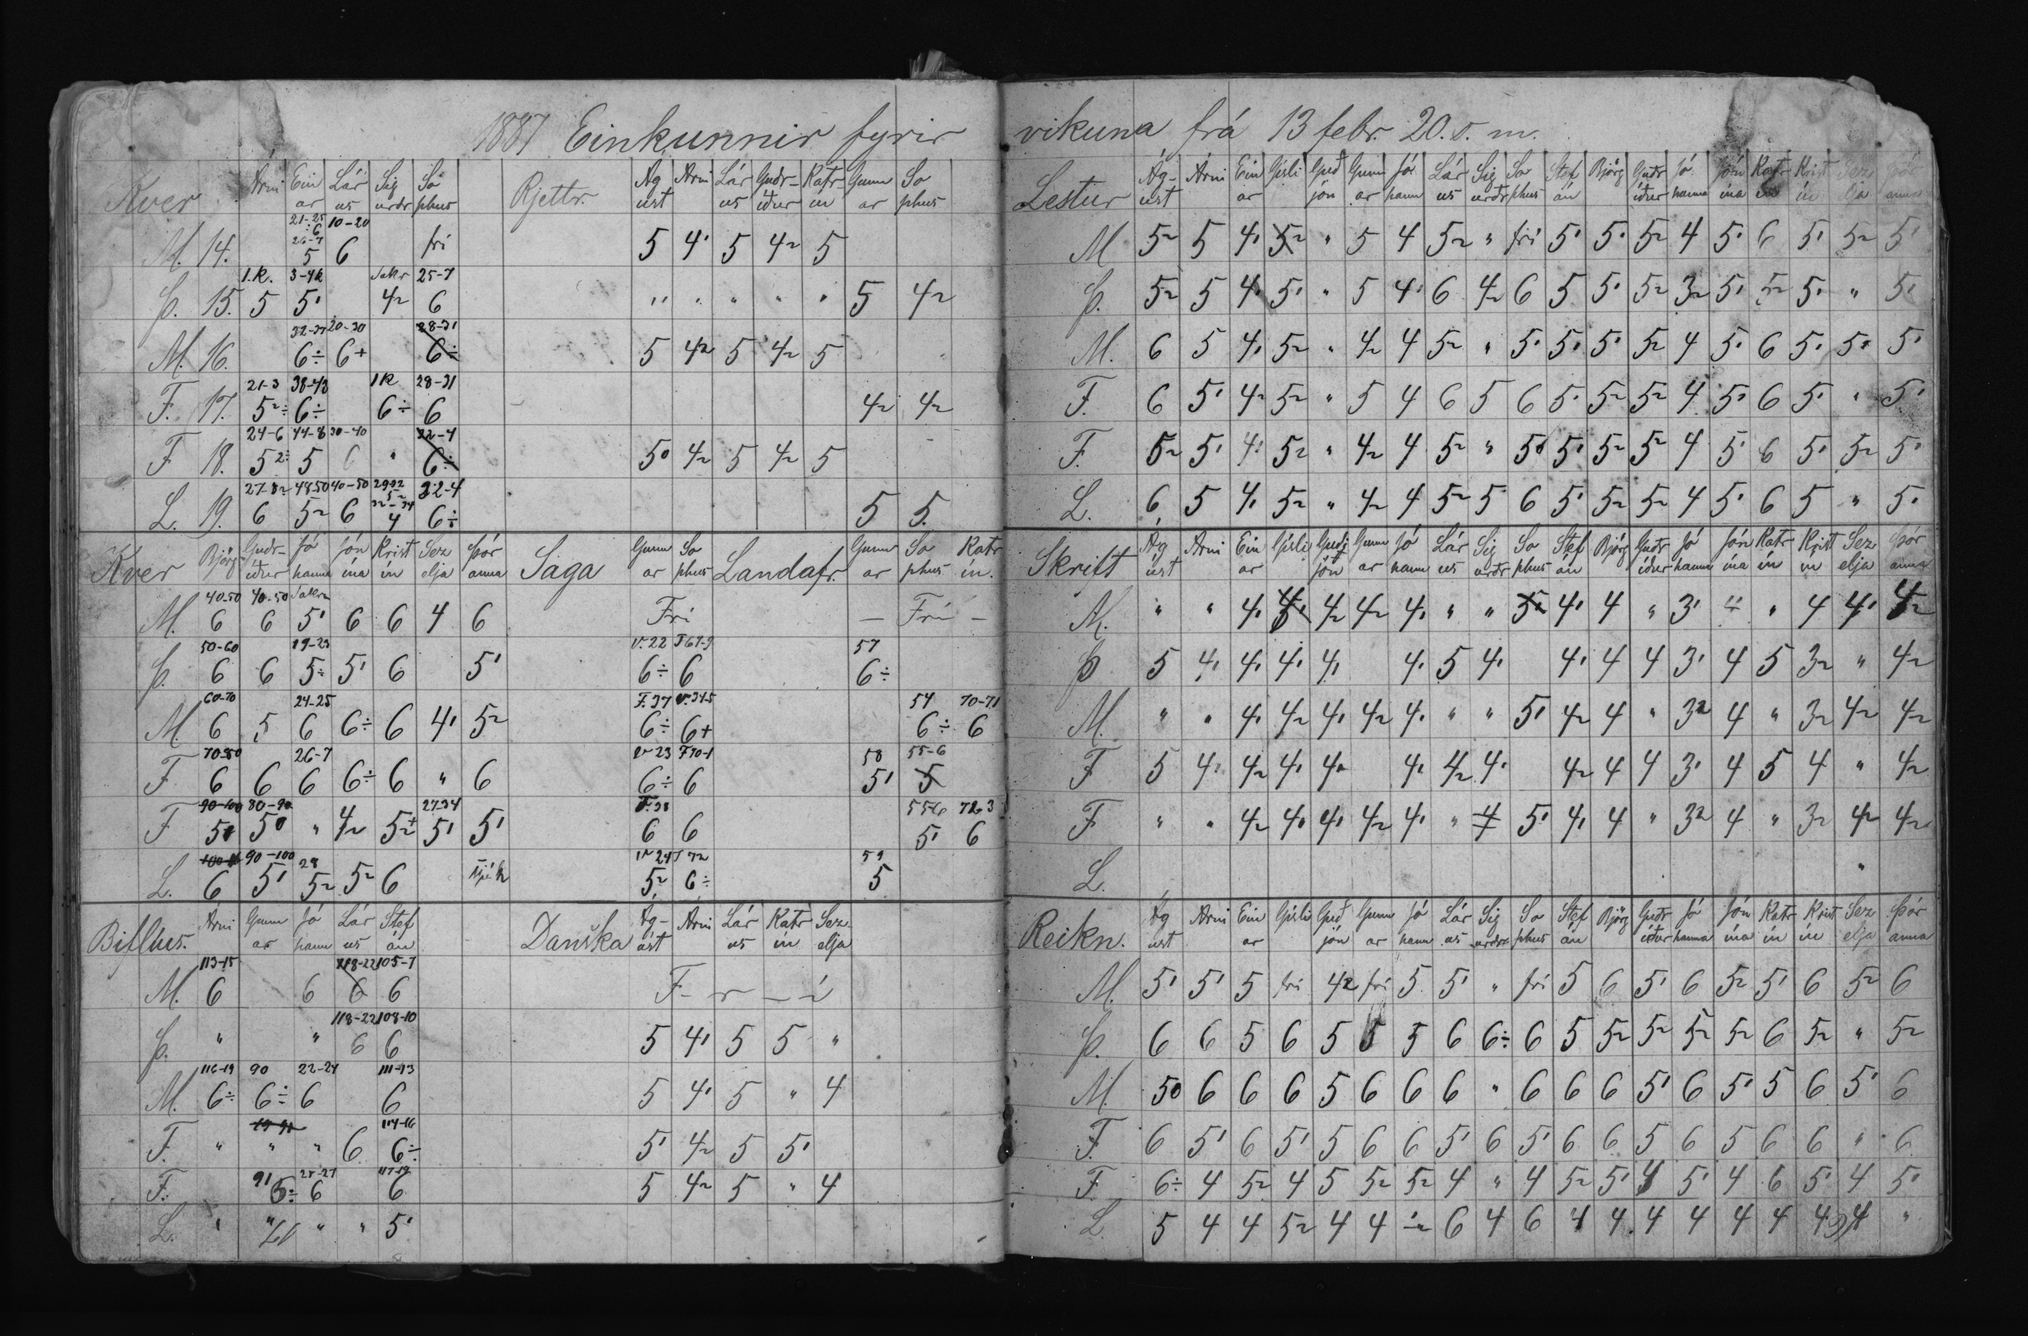 1887 Einkunnir fyrir vikuna frá 13 febr. 20. s. m.
Kver Árni Ein Lár Sig So Rjettr. Ág Árni Lár Guðr- Katr Gunn So
ar us urðr phus úst us iður ín ar phus
21-25 10-20
M. 14. 5 6 frí 5 4' 5 42 5
1.K. 3-4k 25-7
Þ. 15. 5 5' 42 6 " " " " " 5 42
20-30 28-31
M. 16. 6÷ 6+ 6÷ 5 42 5 42 5
21-3 38-43 1K 28-31
F. 17. 52÷ 6÷ 6÷ 6 42 42
24-6 44-8 30-40 32-4
F 18. 52÷ 5 6 " 6÷ 5° 42 5 42 5
27-32 4850 40-50 32-4
L. 19. 6 52 6 4 6÷ 5 5.
Kver Björg Guðr- Jó Jón Krist Sez Þór Saga Gunn So Landafr. Gunn So Katr
iður hanna ína ín elja anna ar phus ar phus ín.
40-50 40-50
M. 6 6 5' 6 6 4 6 Frí — Frí —
50-60 19-23 v. 22 57
Þ. 6 6 5÷ 5' 6 5' 6÷ 6 6÷
60-70 24-25 F. 37 54 70-71
M. 6 5 6 6÷ 6 4' 52 6÷ 6+ 6÷ 6
70-80 26-7 v 23 F70-1 58 55-6
F 6 6 6 6÷ 6 " 6 6÷ 6 5' 5
90-100 80-90 27-34 F. 38 72-3
F 5' 5° " 42 52+ 5' 5' 6 6 5' 6
90-100 28 v 24 72 59
L. 6 5' 52 52 6 52 6÷ 5
Biflíus. Árni Gunn Jó Lár Stef Danska Ág- Árni Lár Katr Sez
ar hann us án úst us ín elja
113-15 118-22 105-7
M. 6 6 6 6 F - r - í
118-22 108-10
Þ. " " 6 6 5 4' 5 5 "
116-19 90 22-24 111-13
M. 6÷ 6÷ 6 6 5 4' 5 " 4
114-16
F. " " " 6 6÷ 5' 42 5 5'
91 25-27 117-19
F. 6÷ 6 6 5 42 5 " 4
L. " " " " 5'
Lestur Ág- Árni Ein Gísli Guð Gunn Jó Lár Sig So Stef Björg Guðr Jó Jón Katr Krist Sez Þór
úst ar jón ar hann us urðr phus án iður hanna ína ín ín elja anna
M 52 5 4' 52 " 5 4 52 " frí 5' 5' 52 4 5' 6 5' 52 5'
Þ. 52 5 4' 5' " 5 4' 6 42 6 5 5' 52 32 5' 52 5' " 5'
M. 6 5 4' 52 " 42 4 52 " 5' 5' 5' 52 4 5' 6 5' 5' 5'
F. 6 5' 42 52 " 5 4 6 5 6 5' 52 52 4 5' 6 5' " 5'
F. 52 5' 4' 52 " 42 4 52 " 5' 5' 52 52 4 5' 6 5' 52 5'
L. 6 5 4' 52 " 42 4 52 5 6 5' 52 52 4 5' 6 5 " 5'
Skrift Ág Árni Ein Gísli Guðj Gunn Jó Lár Sig So Stef Björg Guðr Jó Jón Katr Krist Sez Þór
úst ar jón ar hann us urðr phus án iður hanna ína ín ín elja anna
M. " " 4' 4' 42 42 4' " " 52 4' 4 " 3' 4 " 4 4' 42
Þ 5 4' 4' 4' 4' 4' 5 4' 4' 4 4 3' 4 5 32 " 42
M. " " 4' 42 4' 42 4' " " 5' 42 4 " 32 4 " 32 42 42
F 5 4' 42 4' 4' 4' 42 4' 42 4 4 3' 4 5 4 " 42
F " " 42 4' 4' 42 4' " 4 5' 4' 4 " 32 4 " 32 42 42
L. "
Reikn. Ág Árni Ein Gísli Guð Gunn Jó Lár Sig So Stef Björg Guðr Jó Jón Katr Krist Sez Þór
úst ar jón ar hann us urður phus án iður hanna ína ín ín elja anna
M. 5' 5' 5 frí 42 frí 5 5' " frí 5 6 5' 6 52 5' 6 52 6
Þ. 6 6 5 6 5 5 5 6 6÷ 6 5 52 52 52 52 6 52 " 52
M. 50 6 6 6 5 6 6 6 " 6 6 6 5' 6 5' 5 6 5' 6
F. 6 5' 6 5' 5 6 6 5' 6 5' 6 6 5 6 5 6 6 " 6
F. 6÷ 4 52 4 5 52 52 4 " 4 52 5' 4 5' 4 6 5' 4 5'
L. 5 4 4 52 4 4 6 4 6 4 4 4 4 4 4 4 4 "